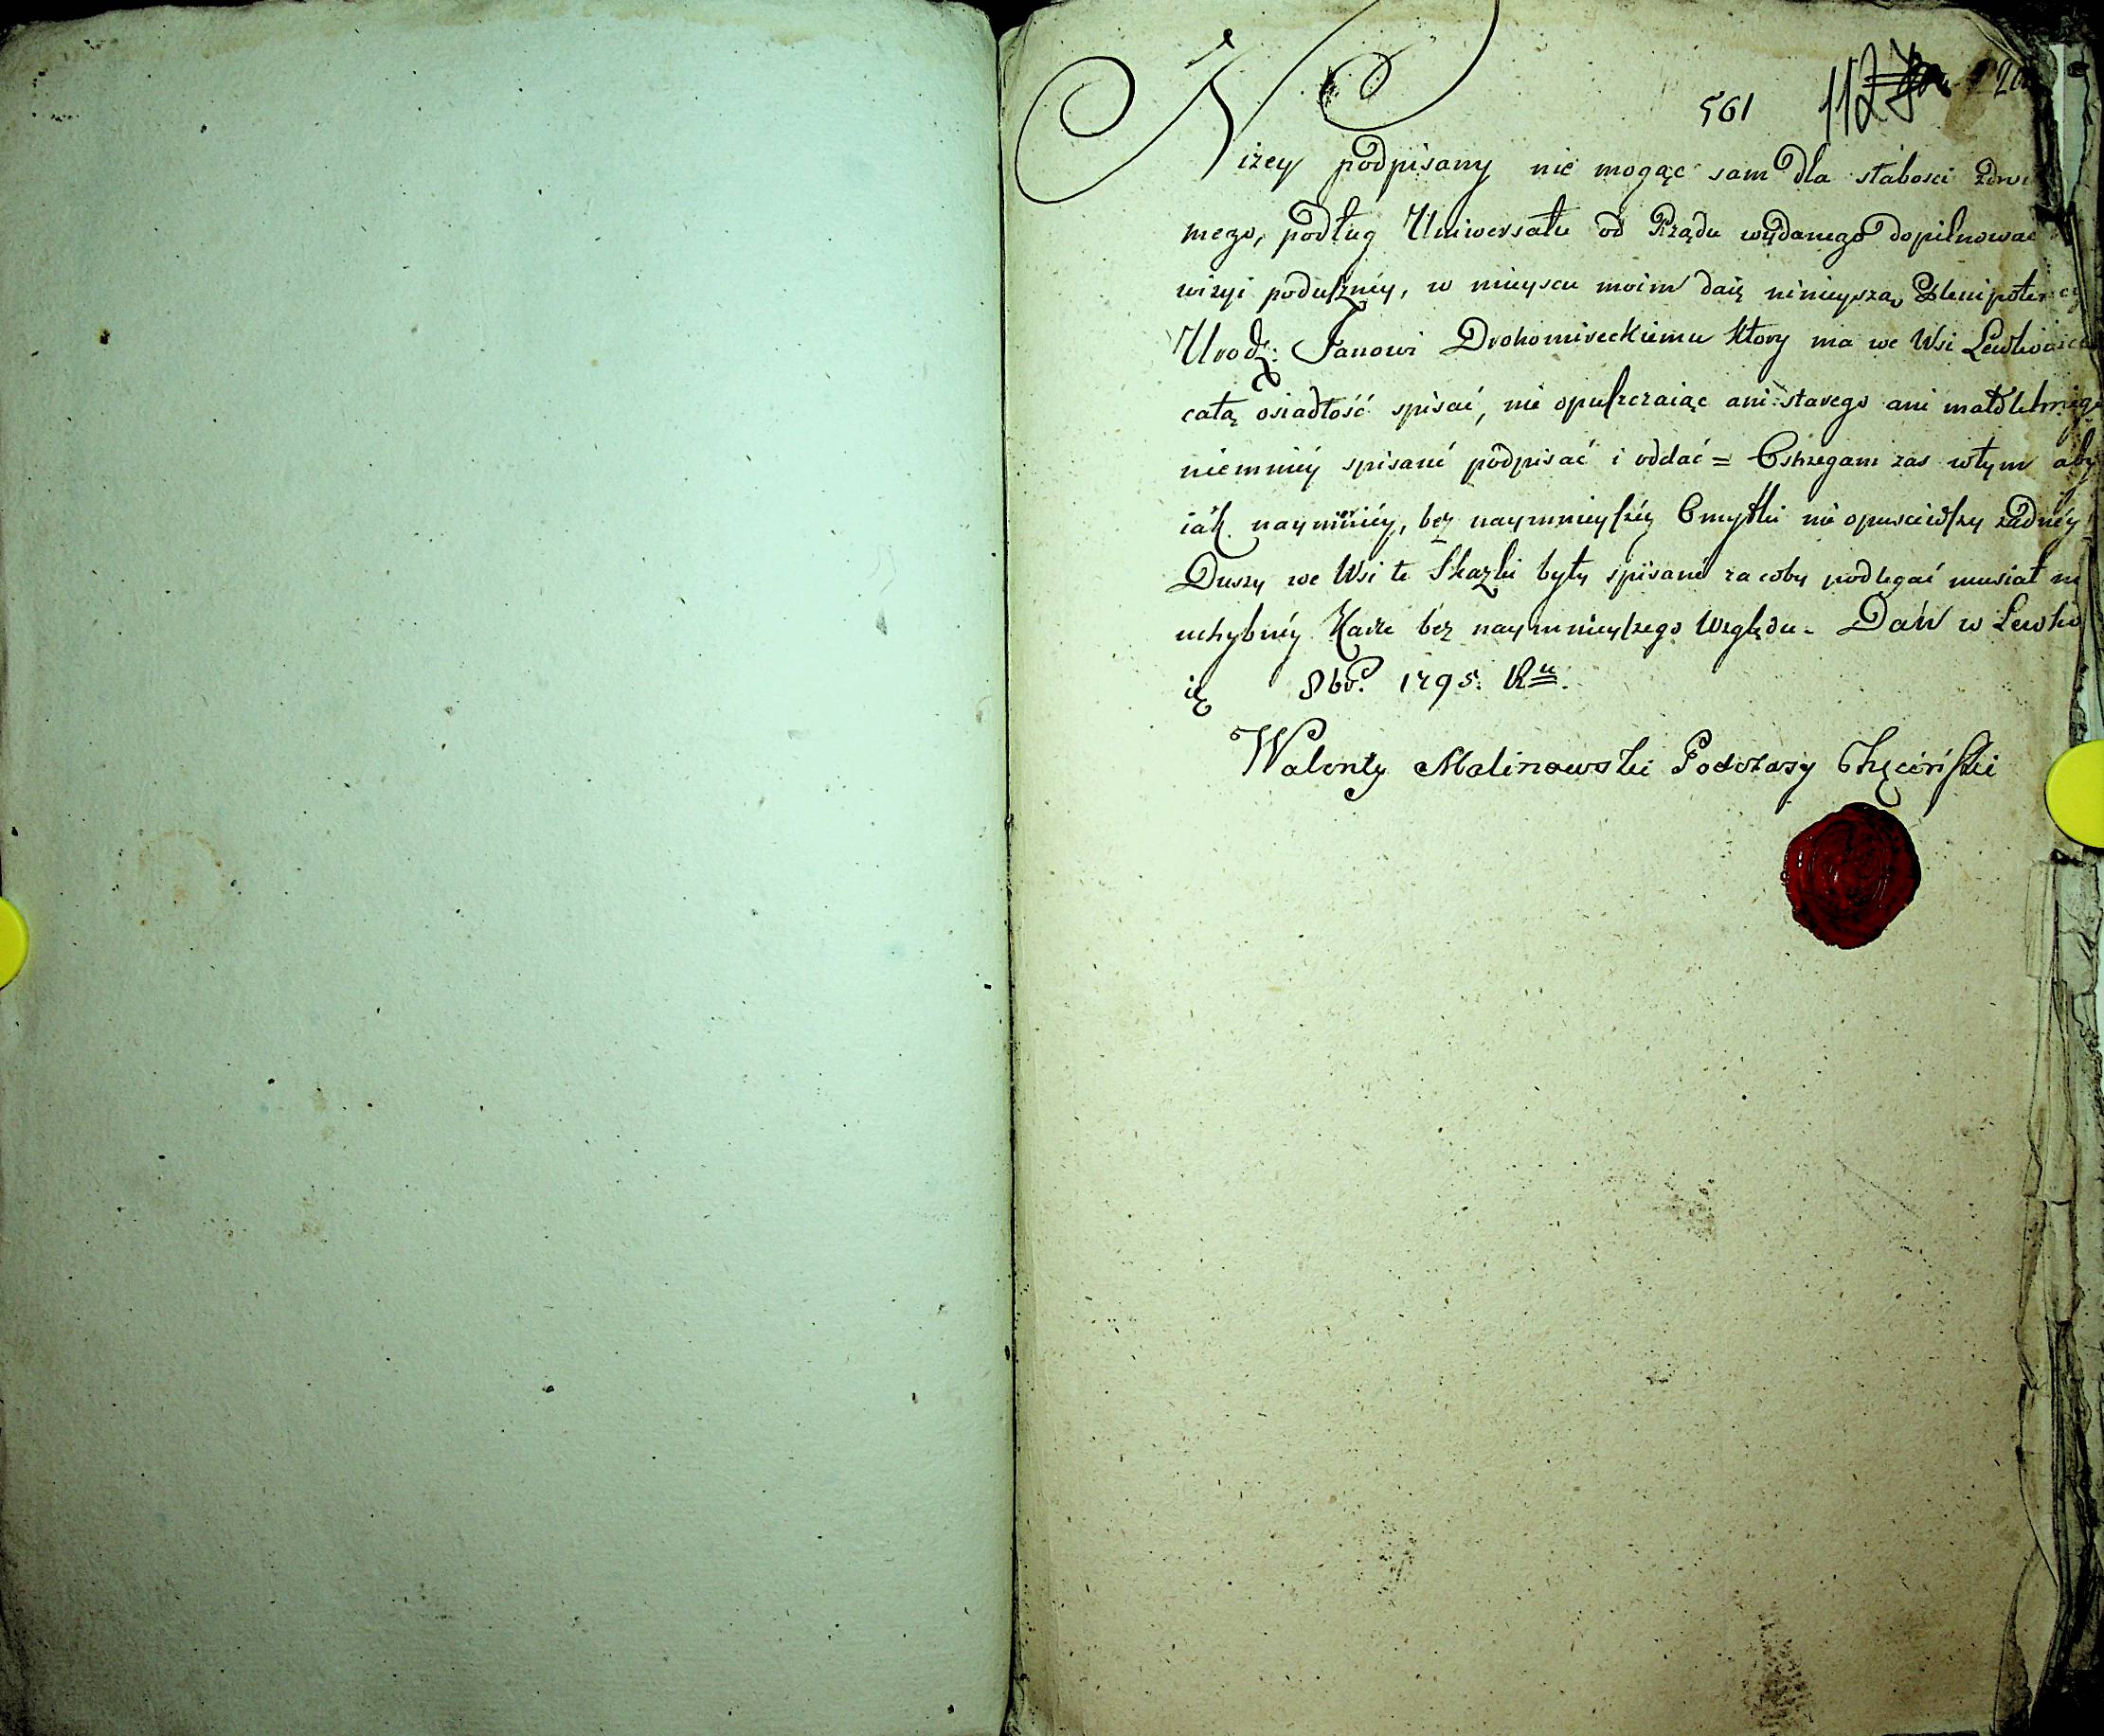 561 112
Niżey podpisany nie mogąc sam dla słabosci
mego, podług Uniwersału od Rządu wydanego dopilnować
wizyi poduszney, w mieyscu moim daię ninieyszą Plenipotencyą
Urodz: Janowi Drohomireckiemu ktory ma we Wsi
całą osiadłość spisać, nie opuszczaiąc ani starego ani małoletniego
niemniey spisane podpisać i oddać = Ostrzegam zas wtym aby
iak naymniey, bez naymnieyszey Omyłki nie opusciwszy żadney
Duszy we Wsi te Skazki były spisane za coby podlegać musiał
uchybney Karze bez naymnieyszego Względu. Dan w
8br. 1795. Ru.
Walenty Malinowski Podczaszy Chęciński